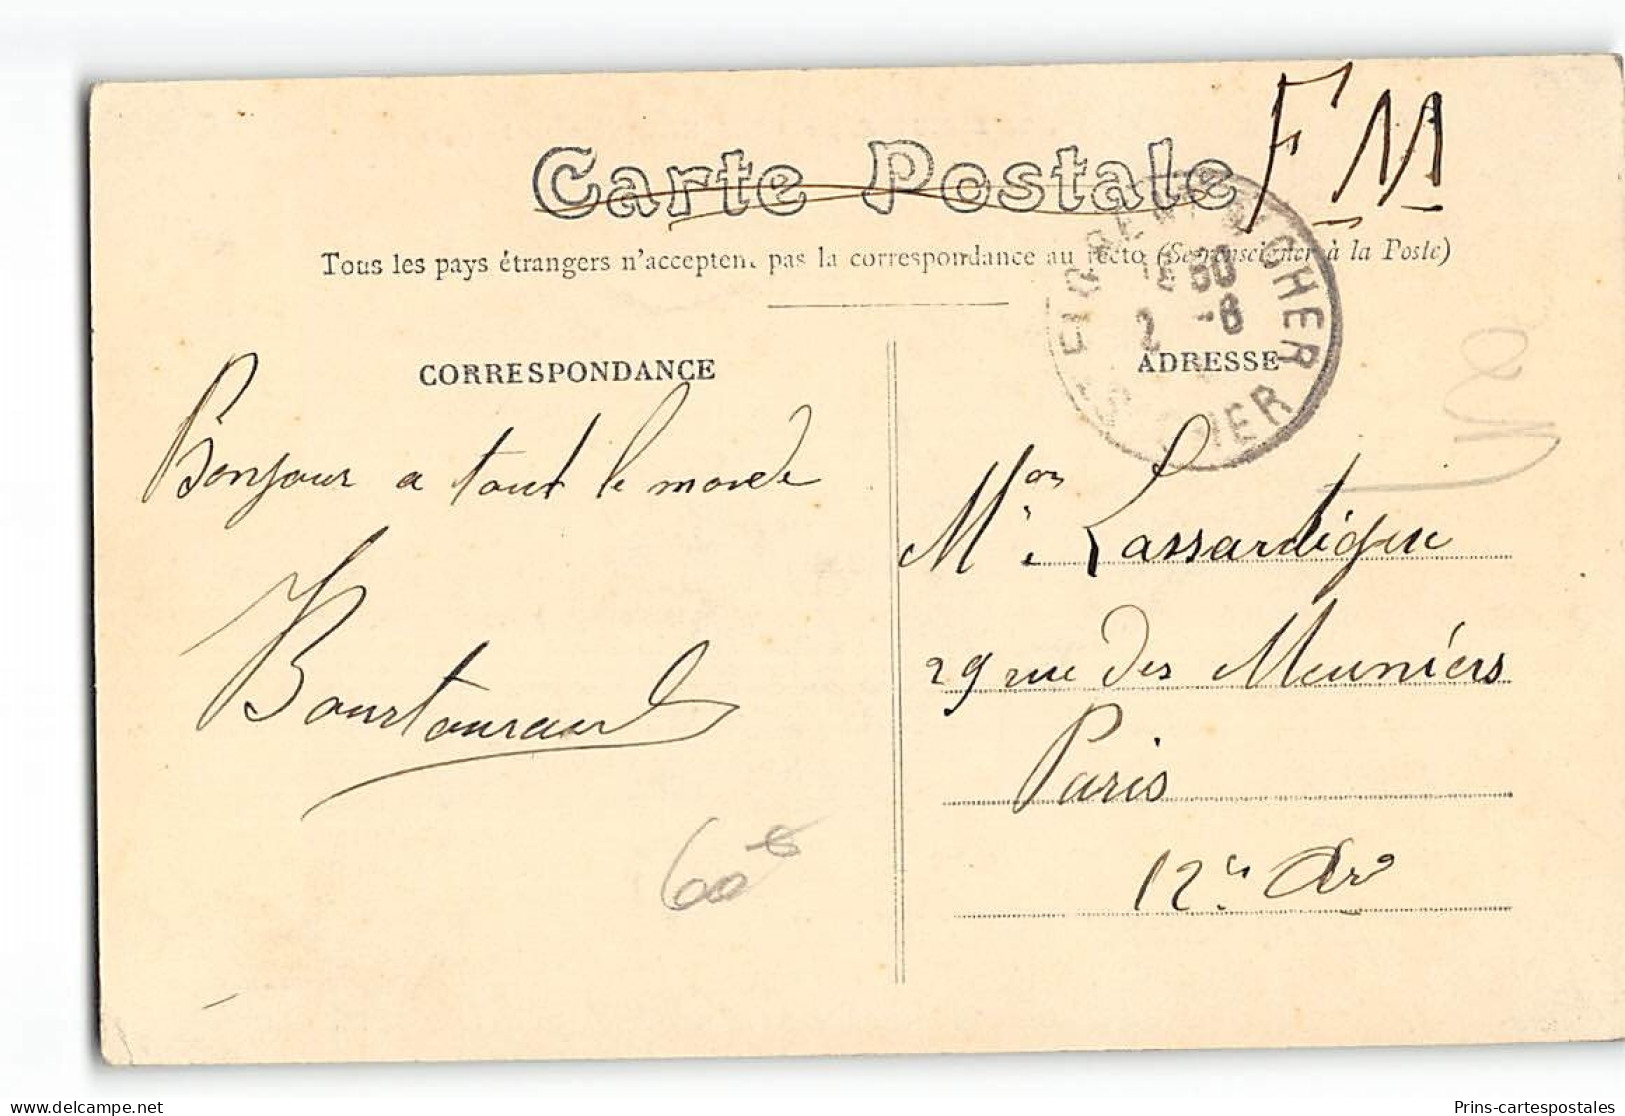 F M
Carte Postale
Tous les pays étrangers n'acceptent pas la correspondance au recto (Se renseigner à la Poste)
CORRESPONDANCE
Bonjour a tout le monde
ADRESSE
Mon Lassardigue
29 rue des Meuniers
Paris
12e Arr
60
2 -8
CHER
delcampe.net
Prins-cartespostales